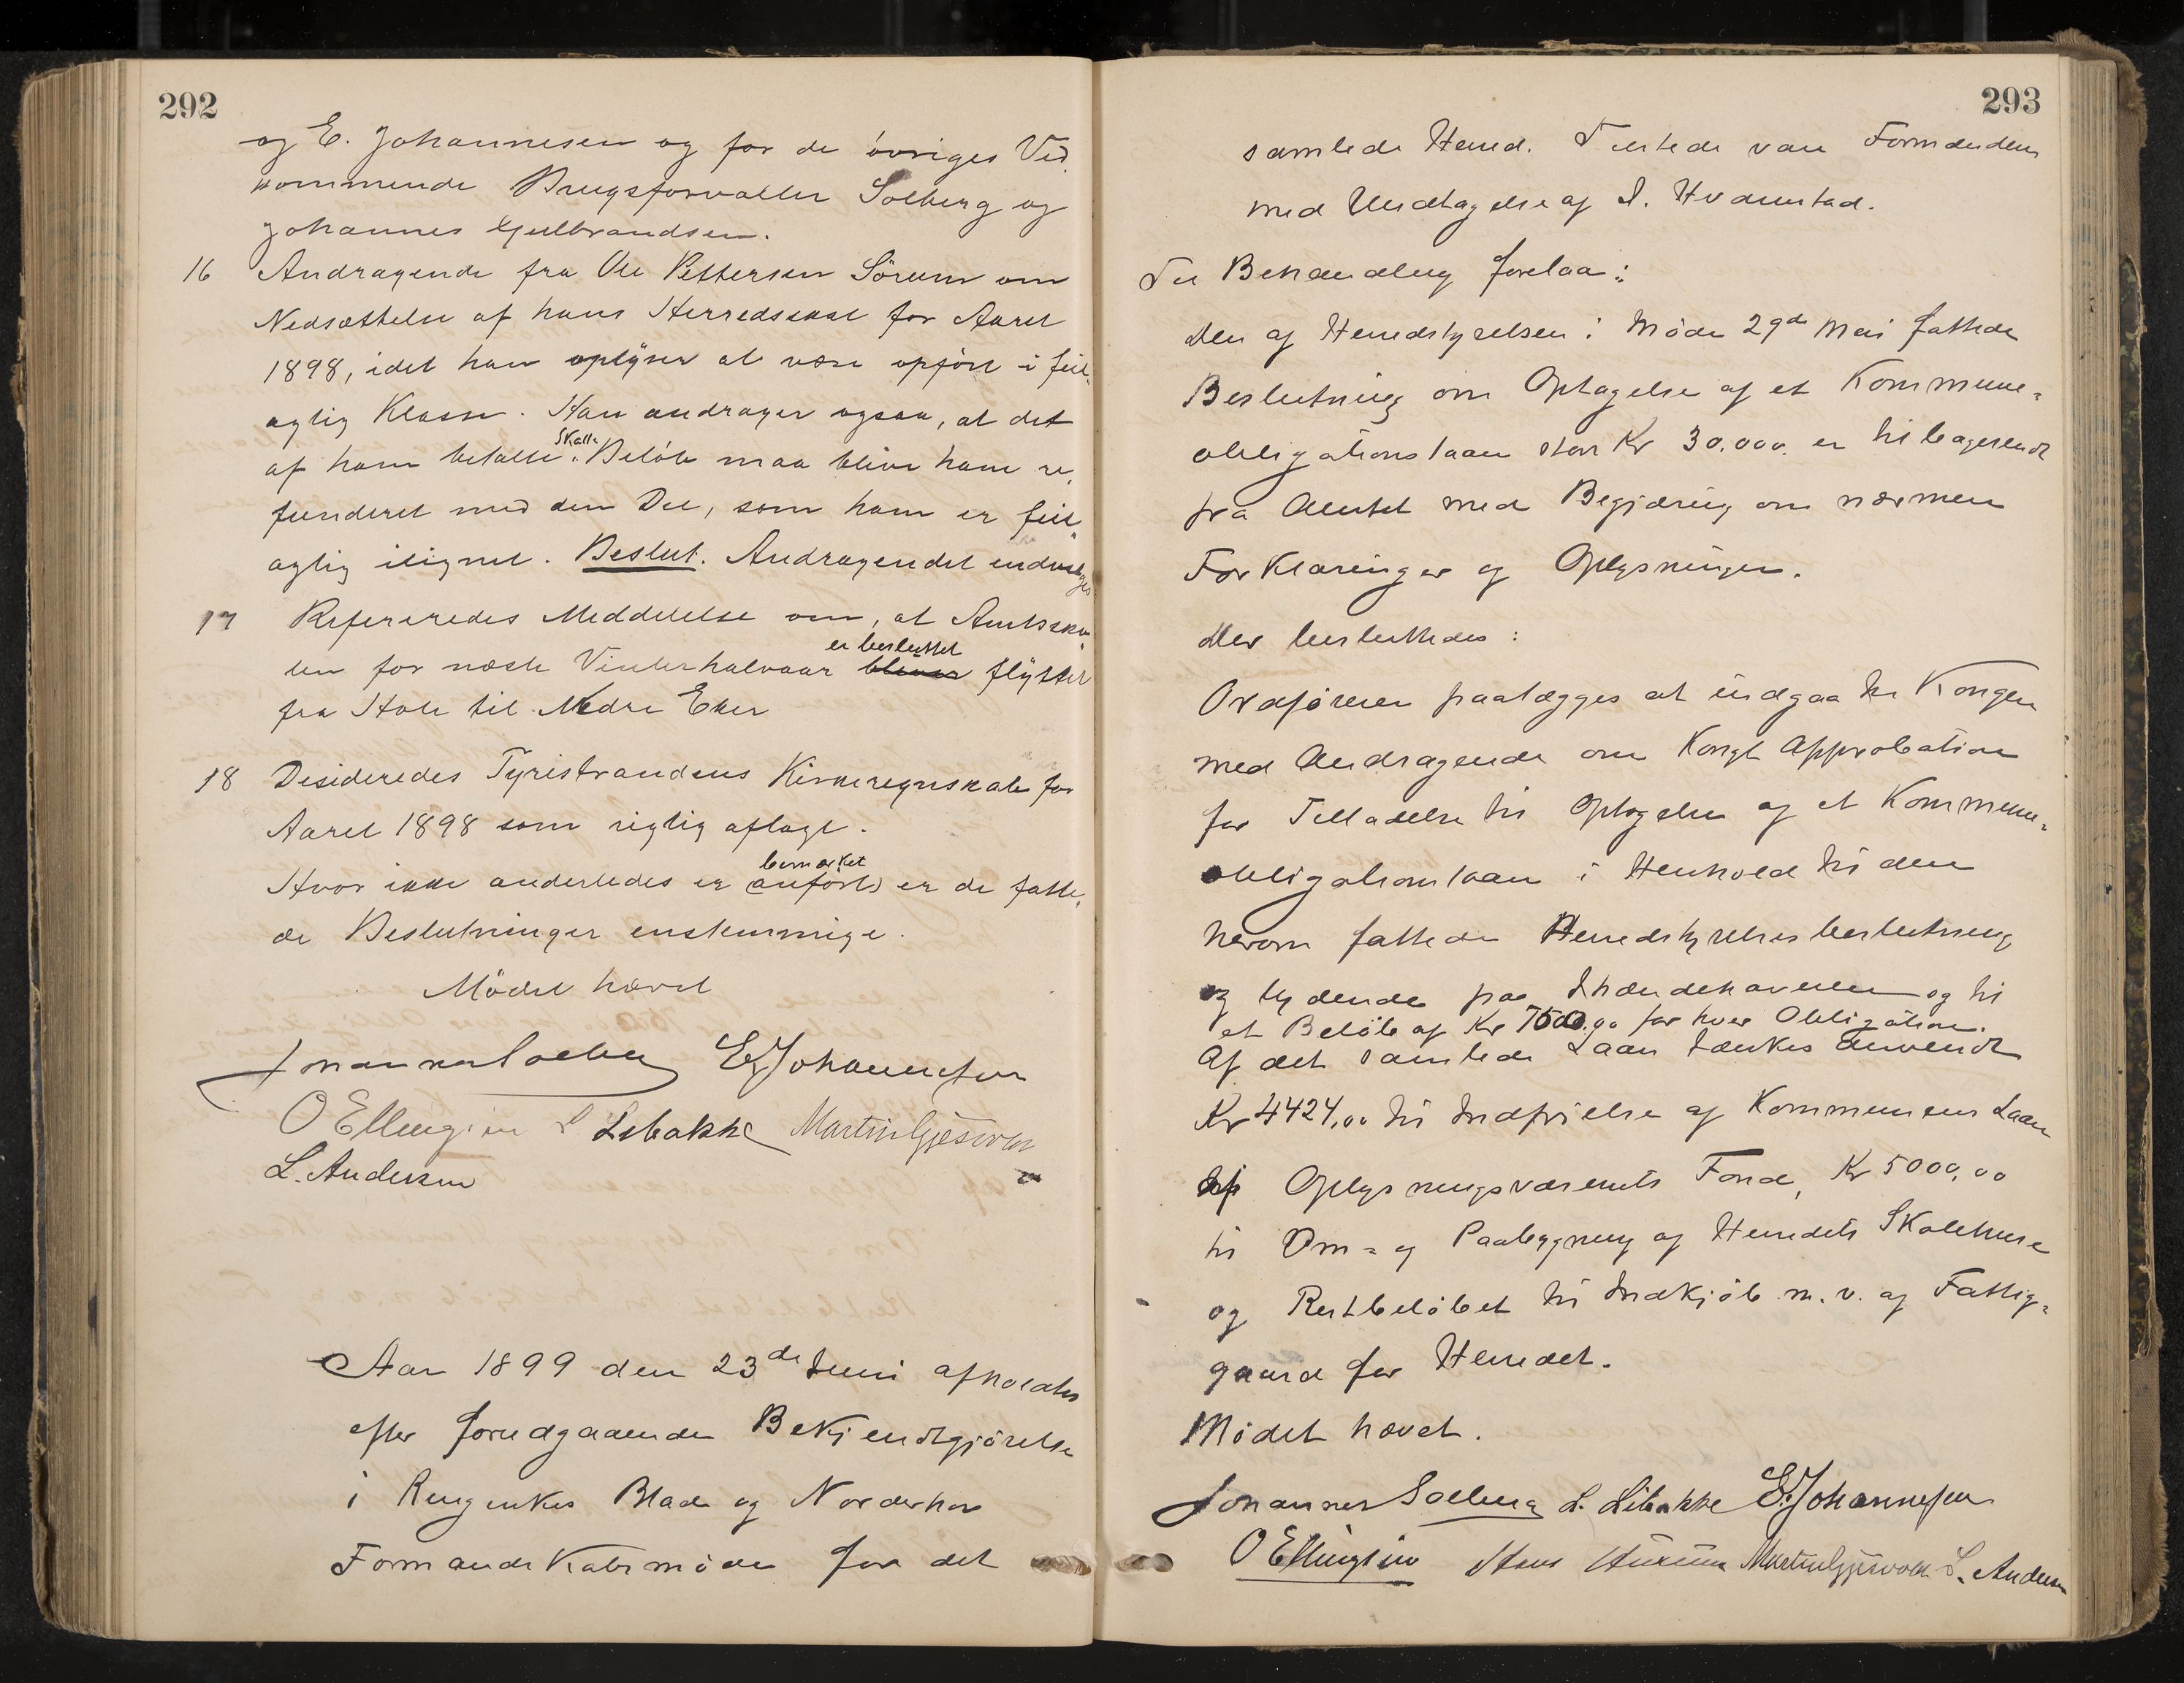 292
og E. Johannesen og for de øvriges Ved
kommende Brugsforvalter Solberg og
Johannes Gulbrandsen.
16 Andragende fra Ole Pettersen Sörum om
Nedsættelse af hans Herredsskat for Aaret
1898, idet han oplyser at være opført i feil„
agtig Klasse. Han andrager ogsaa, at det
af ham betalte Skatte„Beløb maa blive ham re„
funderet med den Del, som ham er feil„
agtig ilignet. Beslut. Andragendet indvilges
17 Refereredes Meddelelse om, at Amtssko„
len for næste Vinterhalvaar bliver er besluttet flyttet
fra Hole til Nedre Eker
18 Desideredes Tyristrandens Kirkeregnskab for
Aaret 1898 som rigtig aflagt.
Hvor ikke anderledes er (anført) bemærket er de fatte„
de Beslutninger enstemmige.
Mødet hævet
Johannes Solberg E. Johannesen
O Ellingsen L Libakke Martin Gjesvold
L. Andersen
Aar 1899 den 23de Juni afholdtes
efter foredgaaende Bekjendtgjörelse
i Ringerikes Blad og Norderhov
Formandskabsmöde for det
293
samlede Herred. Tilstede var Formænden
med Undtagelse af I. Hvamstad.
Til Behandling forelaa:
Den af Herredstyrelsen i Møde 29de Mai fattede
Beslutning om Optagelse af et Kommune=
obligationslaan stort Kr 30.000. er tilbagesendt
fra Amtet med Begjæring om nærmere
Forklaringer og Oplysninger.
Der besluttedes:
Ordføreren paalægges at indgaa til Kongen
med Andragende om Kongl Approbation
for Tilladelse til Optagelse af et Kommune=
obligationslaan i Henhold til den
herom fattede Herredstyrelsesbeslutning
og lydende paa Ihændehaveren og til
et Beløb af Kr 7500.00 for hver Obligation.
Af det samlede Laan tænkes anvendt
Kr 4424,00 til Indfrielse af Kommunens Laan
af Oplysningsvæsenets Fond, Kr 5000,00
til Om= og Paabygning af Herredets Skolehuse
og Restbeløbet til Indkjøb m. v. af Fattig=
gaard for Herredet.
Mødet hævet.
Johannes Solberg L. Libakke E. Johannesen
O Ellingsen Hans Hurum Martin Gjesvold L. Andersen